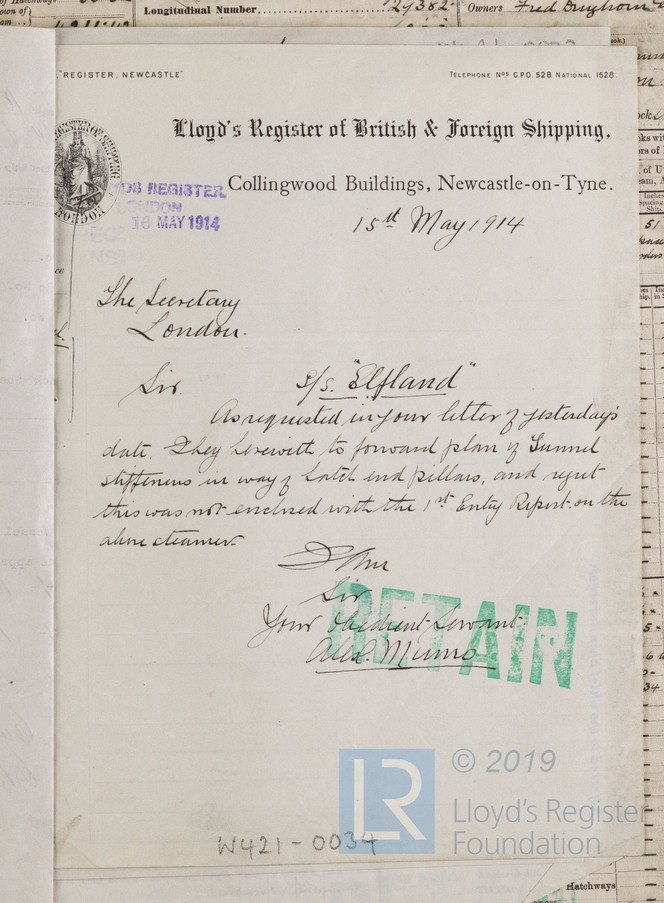 Longitudinal Number
127382
Owners Fred Drughorn
"REGISTER, NEWCASTLE".
TELEPHONE Nos G.P.O. 528 NATIONAL 1528
Lloyd's Register of British & Foreign Shipping.
Collingwood Buildings, Newcastle-on-Tyne.
REGISTER OF SHIPPING
LONDON
DS REGISTER,
LONDON
16 MAY 1914
15th May 1914
The Secretary
London.
Sir
s/s. "Elfland"
As requested in your letter of yesterday's
date, I beg herewith to forward plan of Tunnel
stiffeners in way of hatch end pillars, and regret
this was not enclosed with the 1st Entry Report on the
above steamer
I am
Sir
Your Obedient Servant
Alex. Munro
RETAIN
LR
© 2019
Lloyd's Register
Foundation
W421-0034
Hatchways